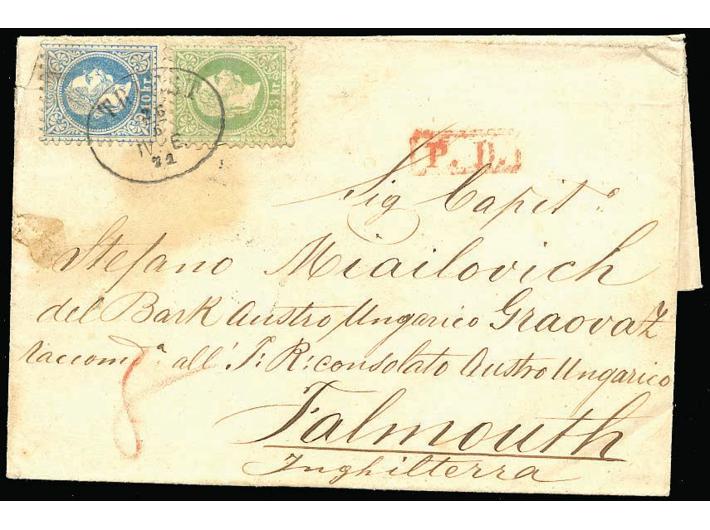 10 kr.
3 kr.
TRIEST
26
IV E.
72
P. D.
Sig Capit.º
Stefano Miailovich
del Bark Austro Ungarico Graovaz
raccom.ª all' I: R: consolato Austro Ungarico
8
Falmouth
Inghilterra